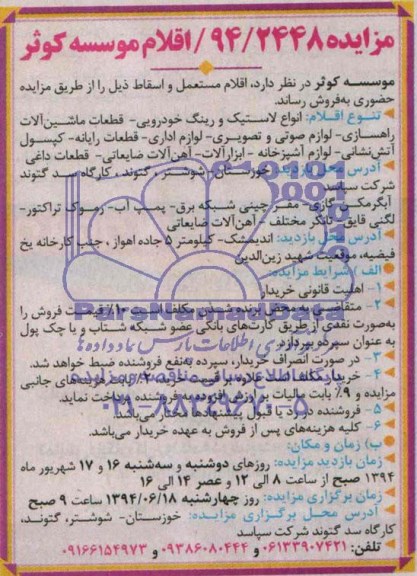 مزایده ۹۴/۲۴۴۸/اقلام موسسه کوثر
موسسه کوثر در نظر دارد، اقلام مستعمل و اسقاط ذیل را از طریق مزایده
حضوری به‌فروش رساند.
تنوع اقلام: انواع لاستیک و رینگ خودرویی- قطعات ماشین‌آلات
راهسازی- لوازم صوتی و تصویری- لوازم اداری- قطعات رایانه- کپسول
آتش‌نشانی- لوازم آشپزخانه - ابزارآلات- آهن‌آلات ضایعاتی- قطعات داغی
آدرس محل بازدید: خوزستان، شوشتر، گتوند، کارگاه سد گتوند
شرکت سپاسد
آبگرمکن گازی- مقره چینی شبکه برق- پمپ آب- رموک تراکتور-
لگنی قایق- تانکر مختلف - آهن‌آلات ضایعاتی
آدرس محل بازدید: اندیمشک- کیلومتر ۵ جاده اهواز، جنب کارخانه یخ
فیضیه، موقعیت شهید زین‌الدین
الف) شرایط مزایده:
۱- اهلیت قانونی خریدار
۲- متقاضی به‌محض برنده شدن مکلف است ۱۰٪ قیمت فروش را
به‌صورت نقدی از طریق کارت‌های بانکی عضو شبکه شتاب و یا چک پول
به عنوان سپرده بپردازد.
۳- در صورت انصراف خریدار، سپرده به‌نفع فروشنده ضبط خواهد شد.
۴- خریدار مکلف است علاوه بر قیمت خرید، ۲٪ بابت هزینه‌های جانبی
مزایده و ۹٪ بابت مالیات بر ارزش افزوده به فروشنده پرداخت نماید.
۵- فروشنده در رد یا قبول پیشنهادها مختار می‌باشد.
۶- کلیه هزینه‌های پس از فروش به عهده خریدار می‌باشد.
ب) زمان و مکان:
زمان بازدید مزایده: روزهای دوشنبه و سه‌شنبه ۱۶ و ۱۷ شهریور ماه
۱۳۹۴ صبح از ساعت ۸ الی ۱۲ و عصر ۱۴ الی ۱۶
زمان برگزاری مزایده: روز چهارشنبه ۱۳۹۴/۰۶/۱۸ ساعت ۹ صبح
آدرس محل برگزاری مزایده: خوزستان- شوشتر، گتوند،
کارگاه سد گتوند شرکت سپاسد
تلفن: ۰۶۱۳۳۹۰۷۴۲۱ و ۰۹۳۸۶۰۸۰۴۴۴ و ۰۹۱۶۶۱۵۴۹۷۳
ParsNamadData
۰۲۱-۸۸۳۴۹۶۷۰-۵